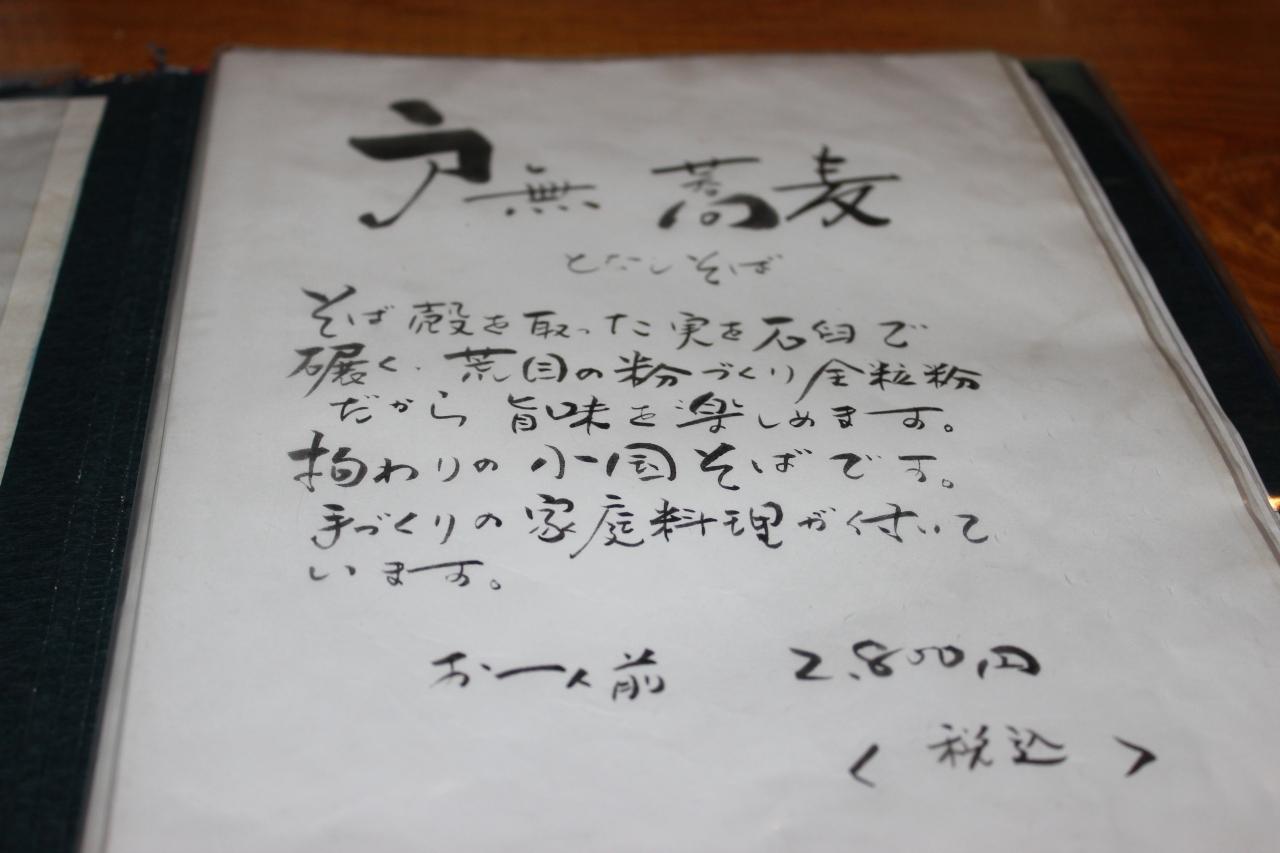 戸無蕎麦
となしそば
そば殻を取った実を石臼で
碾く.荒目の粉づくり全粒粉
だから旨味を楽しめます。
拘わりの小国そばです。
手づくりの家庭料理が付いて
います。
お一人前 2.800円
< 税込 >